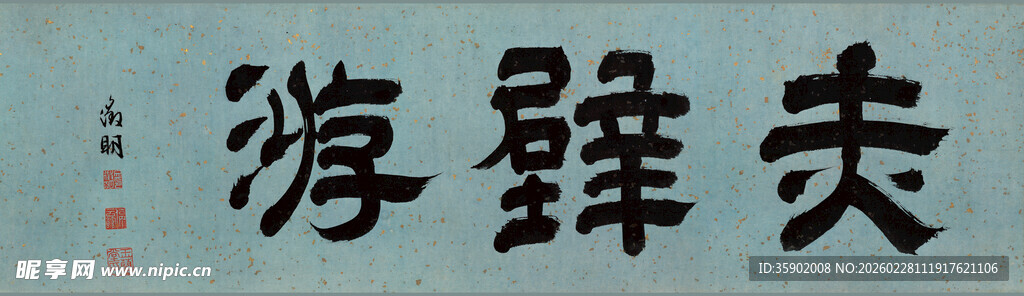 赤壁游
徵明
昵享网 www.nipic.cn
ID:35902008 NO:20260228111917621106